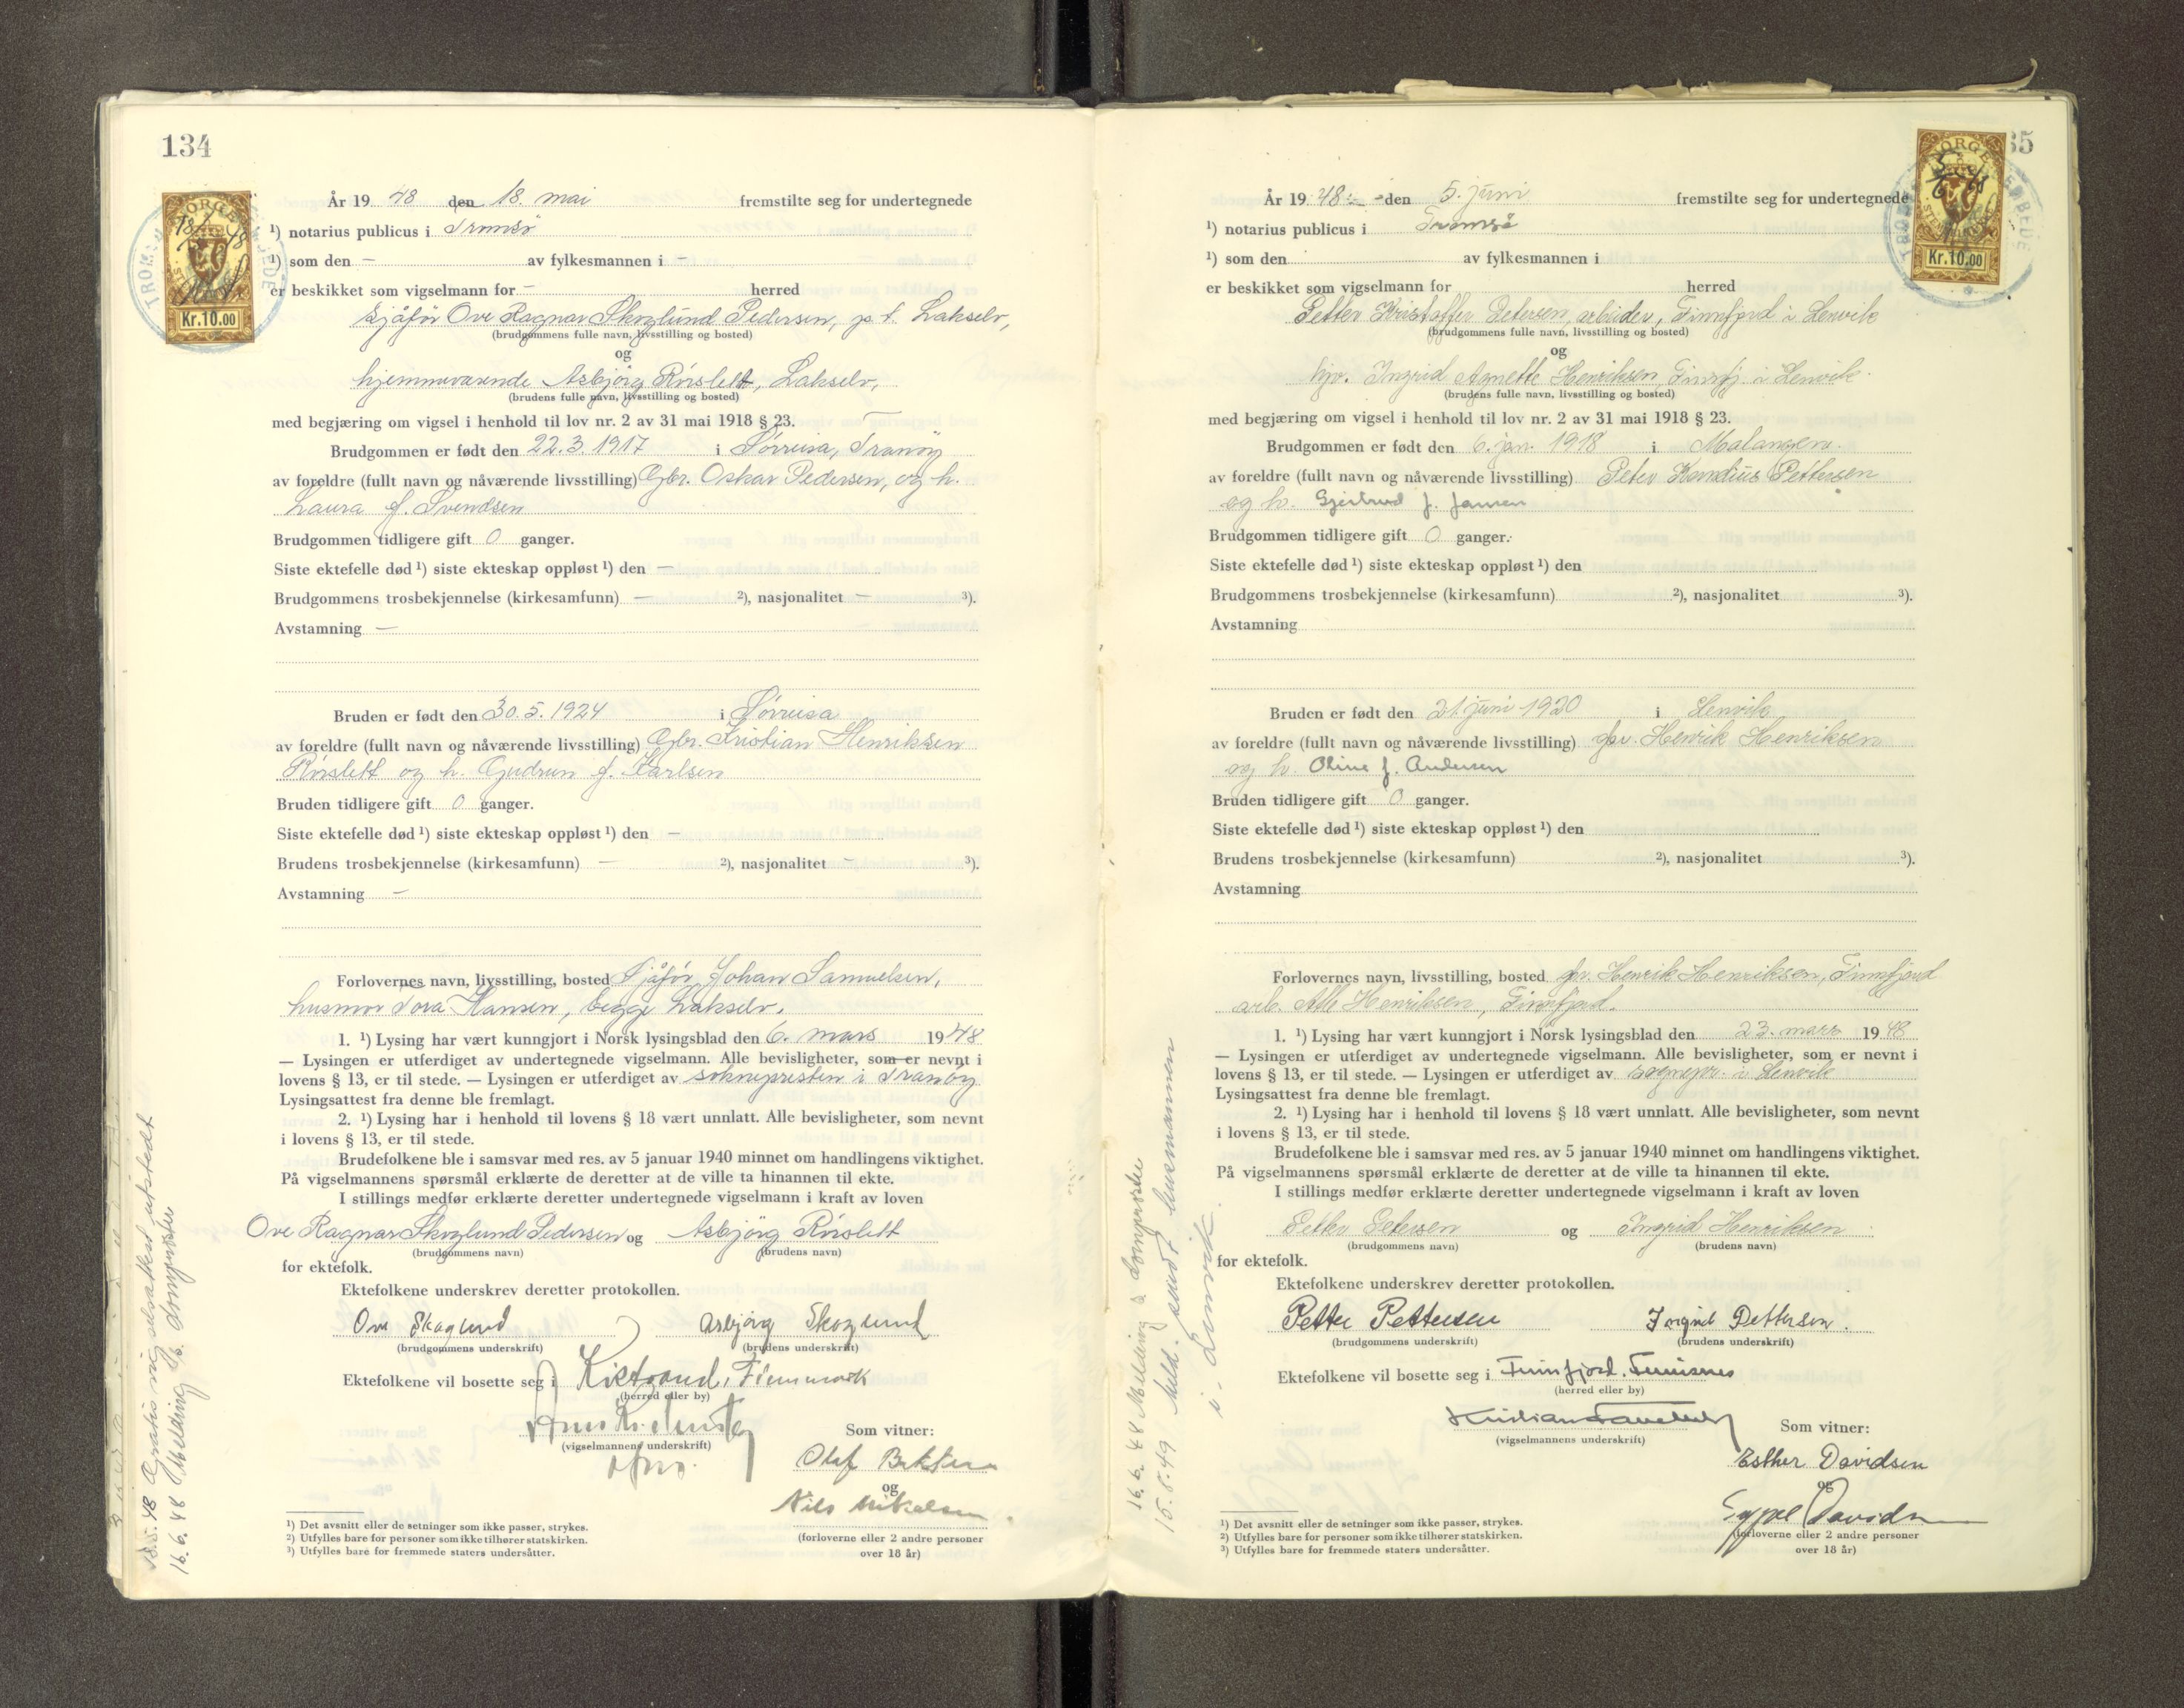 134
NORGE
Kr.10.00
År 1948 den 18. mai fremstilte seg for undertegnede
¹) notarius publicus i Tromsö
¹) som den — av fylkesmannen i —
er beskikket som vigselmann for — herred
Sjåför Ove Ragnar Skoglund Pedersen, p.t. Lakselv,
(brudgommens fulle navn, livsstilling og bosted)
og
hjemmeværende Asbjörg Rörslett, Lakselv,
(brudens fulle navn, livsstilling og bosted)
med begjæring om vigsel i henhold til lov nr. 2 av 31 mai 1918 § 23.
Brudgommen er født den 22.3.1917 i Sörreisa, Tranöy
av foreldre (fullt navn og nåværende livsstilling) Gbr. Oskar Pedersen, og h.
Laura f. Svendsen
Brudgommen tidligere gift 0 ganger.
Siste ektefelle død ¹) siste ekteskap oppløst ¹) den —
Brudgommens trosbekjennelse (kirkesamfunn) — ²), nasjonalitet — ³).
Avstamning —
Bruden er født den 30.5.1924 i Sörreisa
av foreldre (fullt navn og nåværende livsstilling) Gbr. Kristian Henriksen
Rörslett og h. Gudrun f. Karlsen
Bruden tidligere gift 0 ganger.
Siste ektefelle død ¹) siste ekteskap oppløst ¹) den —
Brudens trosbekjennelse (kirkesamfunn) — ²), nasjonalitet — ³).
Avstamning —
Forlovernes navn, livsstilling, bosted Sjåför Johan Samuelsen,
husmor Tora Hansen, begge Lakselv.
1. ¹) Lysing har vært kunngjort i Norsk lysingsblad den 6. mars 1948
— Lysingen er utferdiget av undertegnede vigselmann. Alle bevisligheter, som er nevnt i
lovens § 13, er til stede. — Lysingen er utferdiget av soknepresten i Tranöy
Lysingsattest fra denne ble fremlagt.
2. ¹) Lysing har i henhold til lovens § 18 vært unnlatt. Alle bevisligheter, som nevnt
i lovens § 13, er til stede.
Brudefolkene ble i samsvar med res. av 5 januar 1940 minnet om handlingens viktighet.
På vigselmannens spørsmål erklærte de deretter at de ville ta hinannen til ekte.
I stillings medfør erklærte deretter undertegnede vigselmann i kraft av loven
Ove Ragnar Skoglund Pedersen og Asbjörg Rörslett
(brudgommens navn) (brudens navn)
for ektefolk.
Ektefolkene underskrev deretter protokollen.
Ove Skoglund Asbjörg Skoglund
(brudgommens underskrift) (brudens underskrift)
Ektefolkene vil bosette seg i Kistrand, Finnmark
(herred eller by)
(vigselmannens underskrift)
Som vitner:
Olaf
og
Nils Mikalsen
(forloverne eller 2 andre personer
over 18 år)
¹) Det avsnitt eller de setninger som ikke passer, strykes.
²) Utfylles bare for personer som ikke tilhører statskirken.
³) Utfylles bare for fremmede staters undersåtter.
18.5.48 Gratis vigselsattest utstedt
16.6.48 Melding s. domprosten
35
NORGE
Kr.10.00
År 1948 den 5. juni fremstilte seg for undertegnede
¹) notarius publicus i Tromsø
¹) som den av fylkesmannen i
er beskikket som vigselmann for herred
Petter Kristoffer Petersen, arbeider, Finnfjord i Lenvik
(brudgommens fulle navn, livsstilling og bosted)
og
hjv. Ingrid Agnette Henriksen, Finnfj. i Lenvik.
(brudens fulle navn, livsstilling og bosted)
med begjæring om vigsel i henhold til lov nr. 2 av 31 mai 1918 § 23.
Brudgommen er født den 6. jan. 1918 i Malangen.
av foreldre (fullt navn og nåværende livsstilling) Peter Kornelius Pettersen
og h. Gjertrud f. Jansen
Brudgommen tidligere gift 0 ganger.
Siste ektefelle død ¹) siste ekteskap oppløst ¹) den
Brudgommens trosbekjennelse (kirkesamfunn) ²), nasjonalitet ³).
Avstamning
Bruden er født den 21. juni 1920 i Lenvik
av foreldre (fullt navn og nåværende livsstilling) gbr. Henrik Henriksen
og h. Oline f. Andersen
Bruden tidligere gift 0 ganger.
Siste ektefelle død ¹) siste ekteskap oppløst ¹) den
Brudens trosbekjennelse (kirkesamfunn) ²), nasjonalitet ³).
Avstamning
Forlovernes navn, livsstilling, bosted gbr. Henrik Henriksen, Finnfjord
arb. Alb. Henriksen, Finnfjord.
1. ¹) Lysing har vært kunngjort i Norsk lysingsblad den 23. mars 1948
— Lysingen er utferdiget av undertegnede vigselmann. Alle bevisligheter, som er nevnt i
lovens § 13, er til stede. — Lysingen er utferdiget av sognepr. i Lenvik
Lysingsattest fra denne ble fremlagt.
2. ¹) Lysing har i henhold til lovens § 18 vært unnlatt. Alle bevisligheter, som nevnt
i lovens § 13, er til stede.
Brudefolkene ble i samsvar med res. av 5 januar 1940 minnet om handlingens viktighet.
På vigselmannens spørsmål erklærte de deretter at de ville ta hinannen til ekte.
I stillings medfør erklærte deretter undertegnede vigselmann i kraft av loven
Petter Petersen og Ingrid Henriksen
(brudgommens navn) (brudens navn)
for ektefolk.
Ektefolkene underskrev deretter protokollen.
Petter Pettersen Ingrid Pettersen.
(brudgommens underskrift) (brudens underskrift)
Ektefolkene vil bosette seg i Finnfjord, Finnsnes
(herred eller by)
Kristian
(vigselmannens underskrift)
Som vitner:
Esther Davidsen
og
Davidsen
(forloverne eller 2 andre personer
over 18 år)
¹) Det avsnitt eller de setninger som ikke passer, strykes.
²) Utfylles bare for personer som ikke tilhører statskirken.
³) Utfylles bare for fremmede staters undersåtter.
16.6.48 Melding s. domprosten
15.8.49 Meld. sendt lensmannen
i Lenvik.